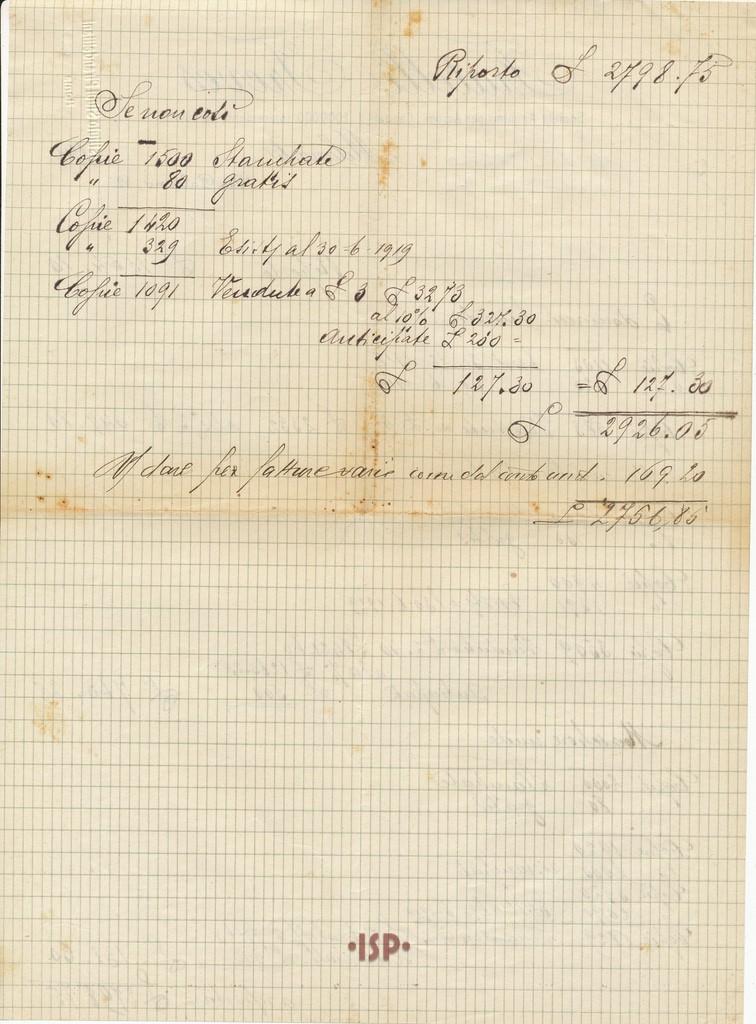 Riporto £ 2798.75
Se non così
Copie 1500 Stampate
" 80 gratis
Copie 1420
" 329 Esist. al 30-6-1919
Copie 1091 Vendute a £ 3 £ 3273
al 10% £ 327.30
Anticipate £ 200 =
£ 127.30 = £ 127.30
£ 2926.05
A dare per fatture varie come dal conto unit. 169.20
£ 2756,85
•ISP•